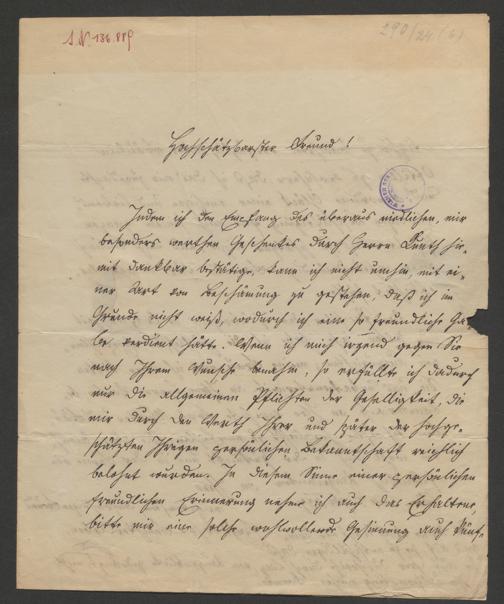 I.N. 136.889
290/24 (6)
Hochschätzbarster Freund!
Indem ich den Empfang des überaus niedlichen, mir
besonders werthen Geschenkes durch Herrn hie-
mit dankbar bestätige, kann ich nicht umhin, mit ei-
ner Art von Beschämung zu gestehen, daß ich im
Grunde nicht weiß, wodurch ich eine so freundliche Ga-
be verdient hätte. Wenn ich mich irgend gegen Sie
nach Ihrem Wunsche benahm, so erfüllte ich dadurch
nur die allgemeinen Pflichten der Geselligkeit, die
mir durch den Werth Ihrer und später der hochge-
schätzten Ihrigen persönlichen Bekanntschaft reichlich
belohnt wurden. In diesem Sinne einer persönlichen
freundlichen Erinnerung nehme ich auch das Erhaltene,
bitte mir eine solche wohlwollende Gesinnung auch künf-